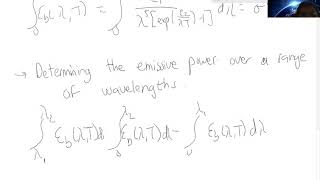 ∫₀ εb(λ,T) = ∫₀ C₁ / λ⁵[exp(C₂/λT)-1] dλ = σ
→ Determining the emissive power over a range
of wavelengths.
∫_λ₁^λ₂ εb(λ,T)dλ ∫₀^λ₂ εb(λ,T)dλ - ∫₀^λ₁ εb(λ,T)dλ